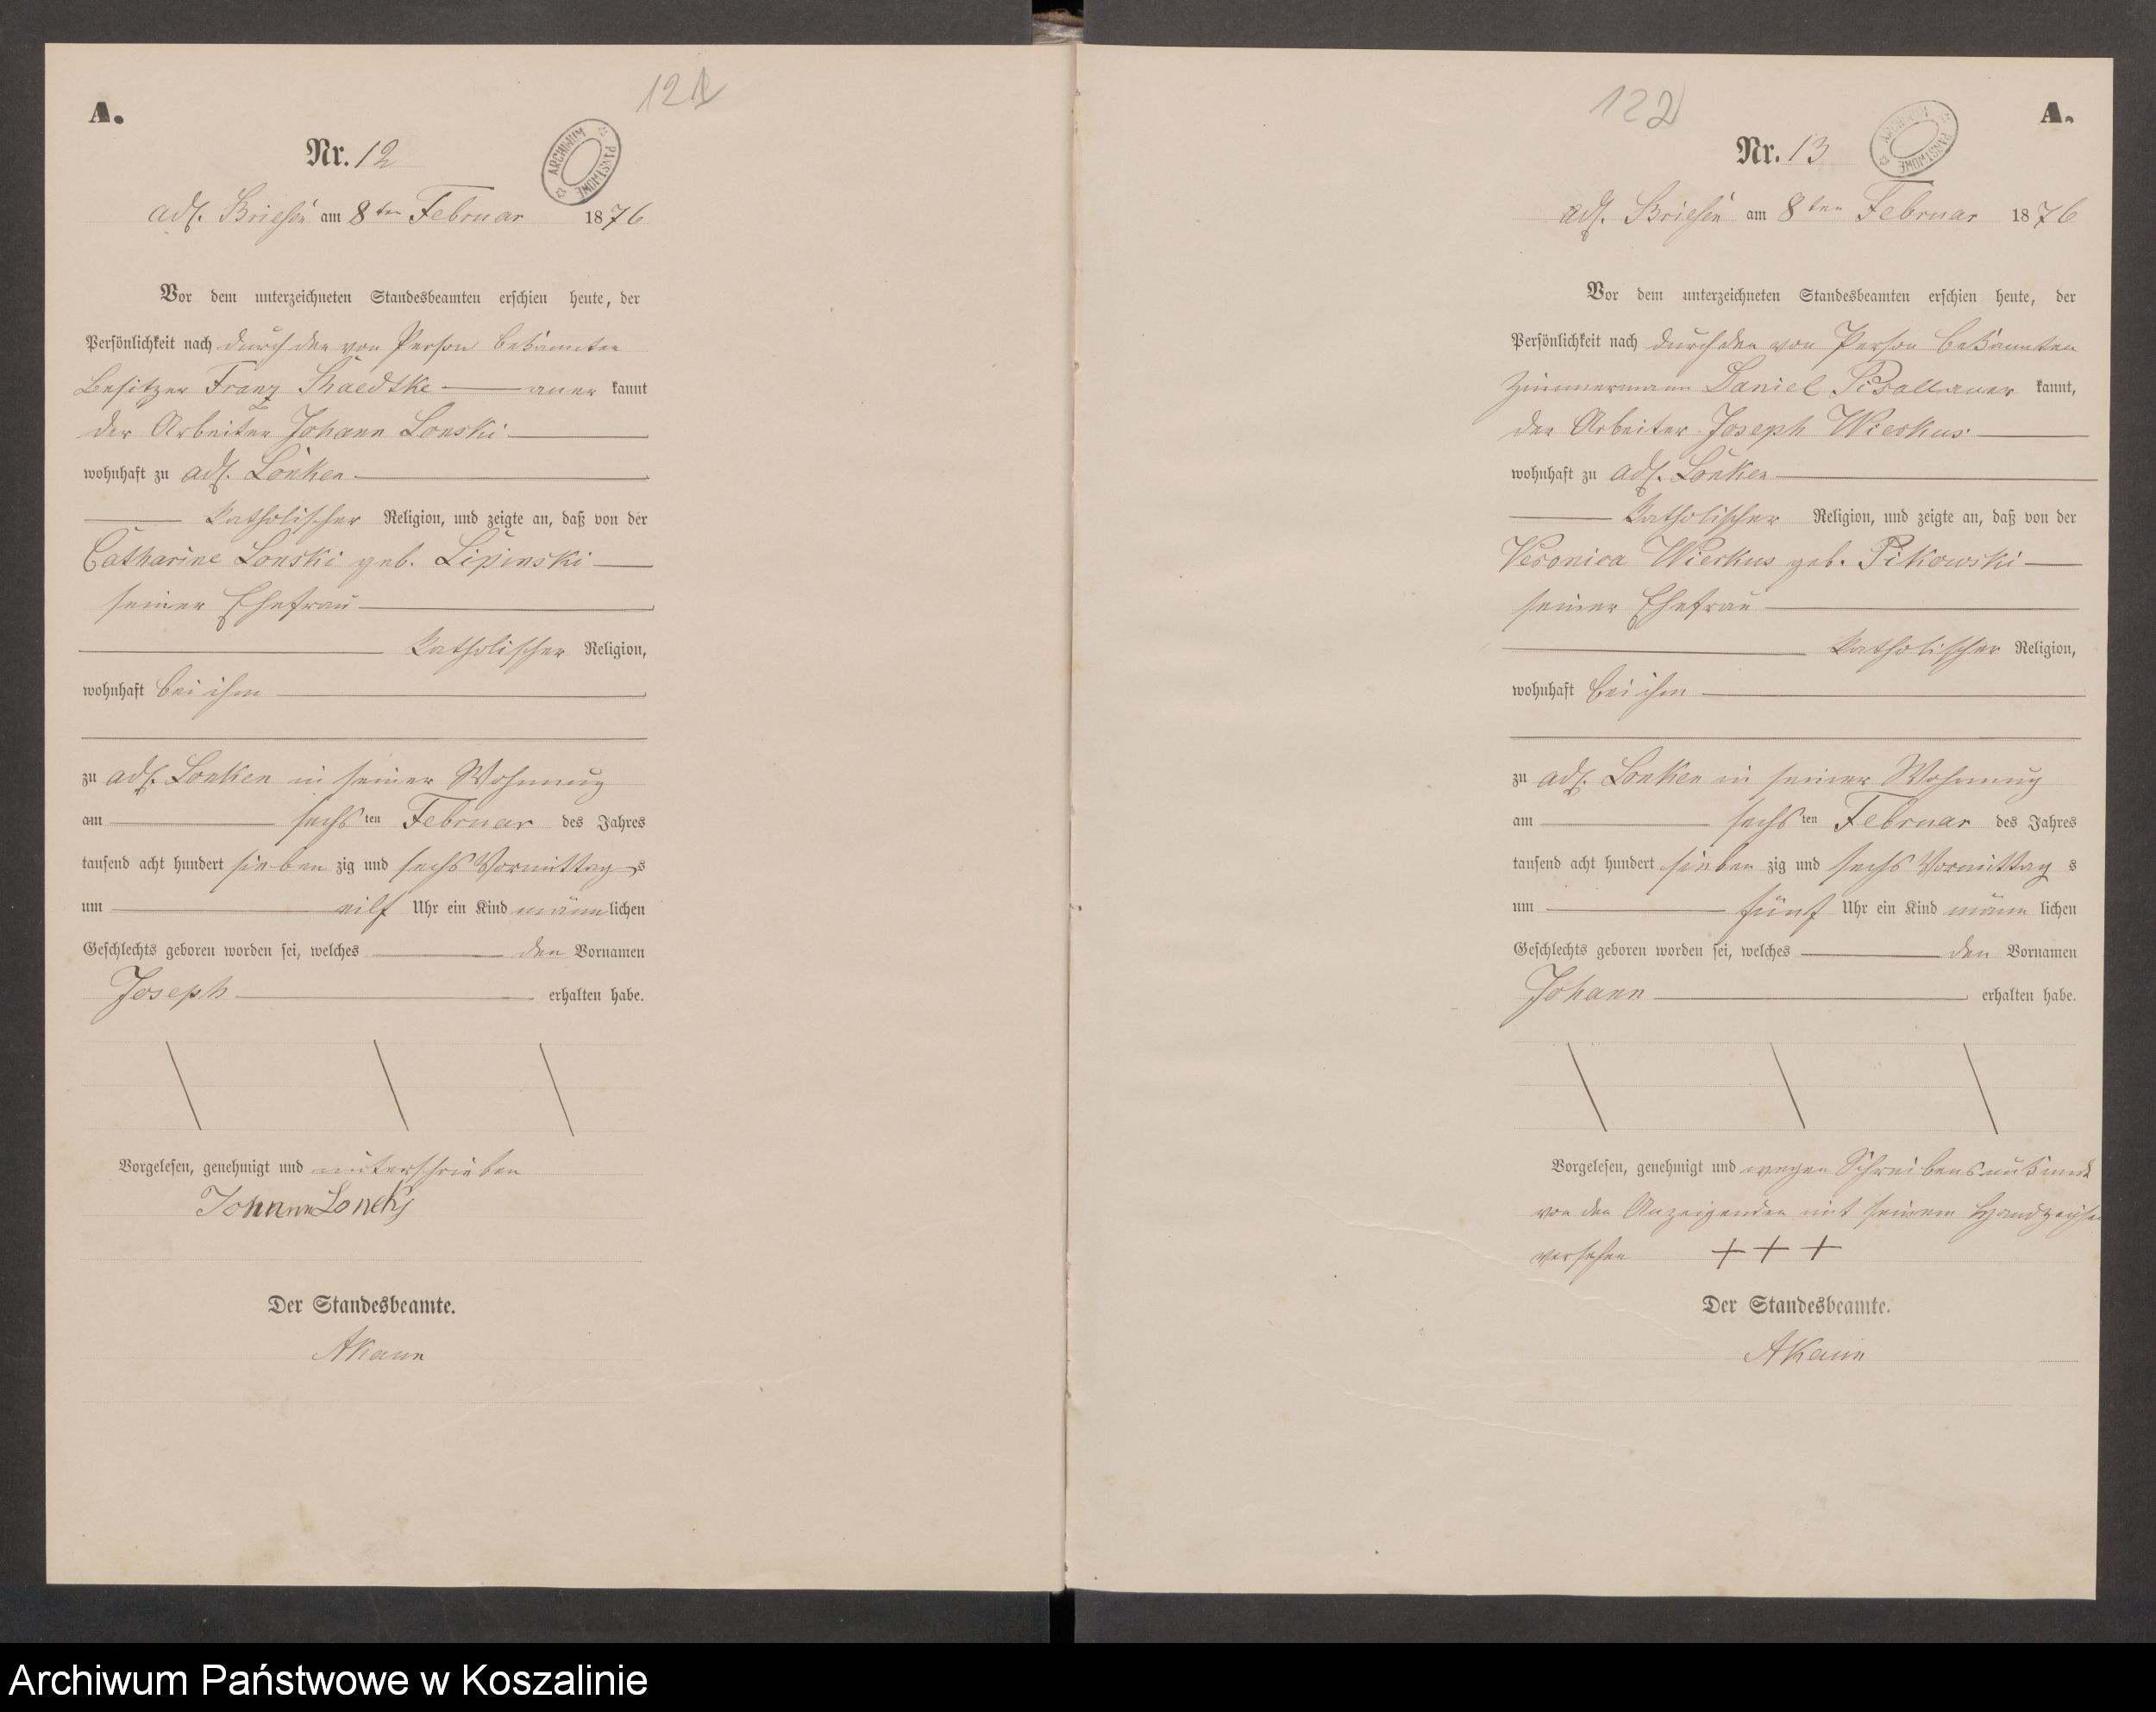 A.
121
Nr. 12
ARCHIWUM PAŃSTWOWE
adl. Briesen am 8ten Februar 1876
Vor dem unterzeichneten Standesbeamten erschien heute, der
Persönlichkeit nach durch den von Person bekannten
Besitzer Franz Thaedtke aner kannt
der Arbeiter Johann Lonski
wohnhaft zu adl. Lonken
katholischer Religion, und zeigte an, daß von der
Catharine Lonski geb. Lipinski
seiner Ehefrau
katholischer Religion,
wohnhaft bei ihm
zu adl. Lonken in seiner Wohnung
am sechs ten Februar des Jahres
tausend acht hundert sieben zig und sechs Vormittag s
um eilf Uhr ein Kind männ lichen
Geschlechts geboren worden sei, welches den Vornamen
Joseph erhalten habe.
Vorgelesen, genehmigt und unterschrieben
Johann Lonski
Der Standesbeamte.
AKann
122
A.
Nr. 13
ARCHIWUM PAŃSTWOWE
adl. Briesen am 8ten Februar 1876
Vor dem unterzeichneten Standesbeamten erschien heute, der
Persönlichkeit nach durch den von Person bekannten
Zimmermann Daniel kannt,
der Arbeiter Joseph Wierkus
wohnhaft zu adl. Lonken
katholischer Religion, und zeigte an, daß von der
Veronica Wierkus geb. Pikowski
seiner Ehefrau
katholischer Religion,
wohnhaft bei ihm
zu adl. Lonken in seiner Wohnung
am sechs ten Februar des Jahres
tausend acht hundert sieben zig und sechs Vormittag s
um fünf Uhr ein Kind männ lichen
Geschlechts geboren worden sei, welches den Vornamen
Johann erhalten habe.
Vorgelesen, genehmigt und wegen Schreibensunkunde
von den Anzeigenden mit seinem Handzeichen
versehen + + +
Der Standesbeamte.
AKann
Archiwum Państwowe w Koszalinie